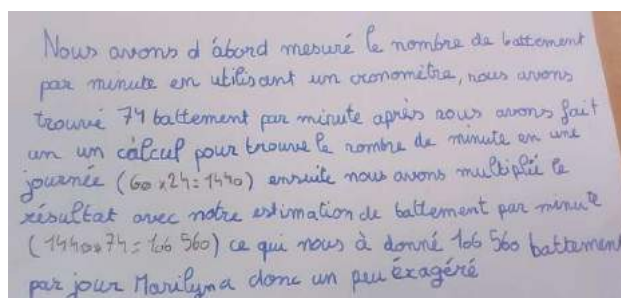 Nous avons d'abord mesuré le nombre de battement
par minute en utilisant un cronomètre, nous avons
trouvé 74 battement par minute après nous avons fait
un un càlcul pour trouve le nombre de minute en une
journée (60x24=1440) ensuite nous avons multiplié le
résultat avec notre estimation de battement par minute
(1440x74=106 560) ce qui nous à donné 106 560 battement
par jour Marilyna donc un peu éxagéré